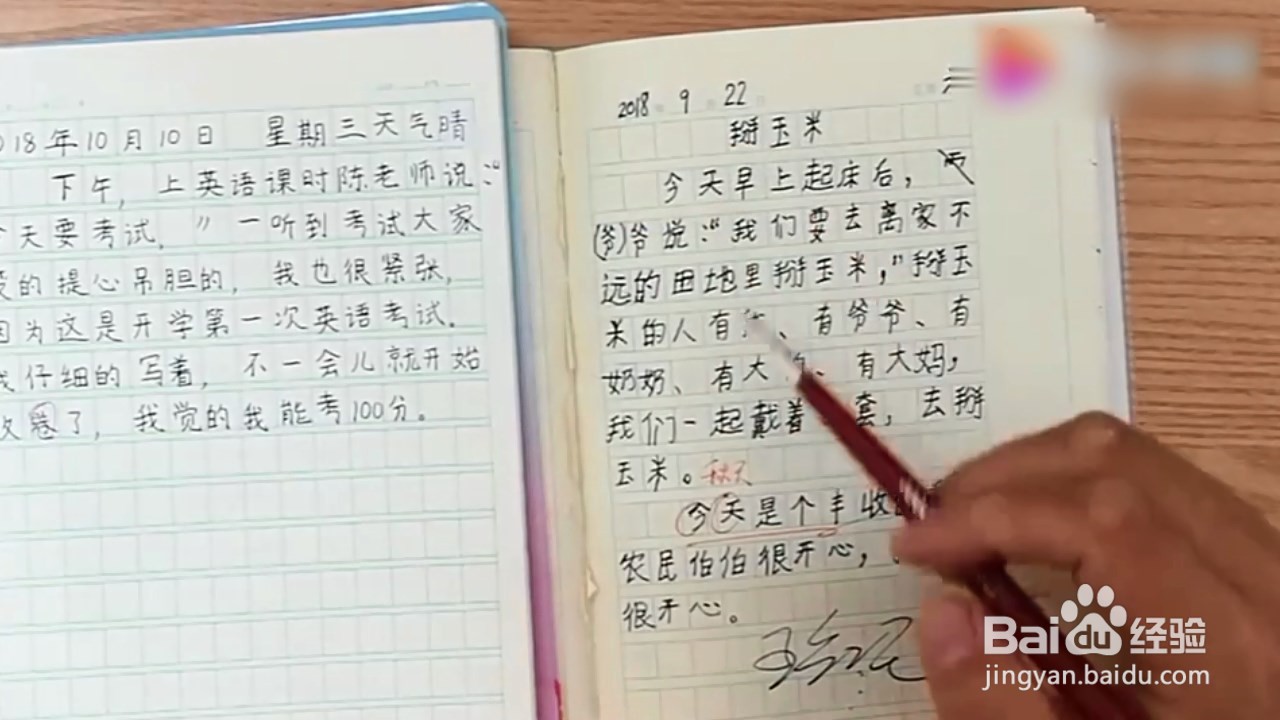 018年10月10日 星期三天气晴
下午，上英语课时陈老师说：“
今天要考试，”一听到考试大家
的提心吊胆的，我也很紧张，
因为这是开学第一次英语考试。
我仔细的写着，不一会儿就开始
收卷了，我觉的我能考100分。
2018 9 22
掰玉米
今天早上起床后，
(爷)爷说：“我们要去离家不
远的田地里掰玉米，”掰玉
米的人有、有爷爷、有
奶奶、有大、有大妈，
我们一起戴着套，去掰
玉米。秋天
今天是个丰收
农民伯伯很开心，
很开心。
Bai du 经验
jingyan.baidu.com